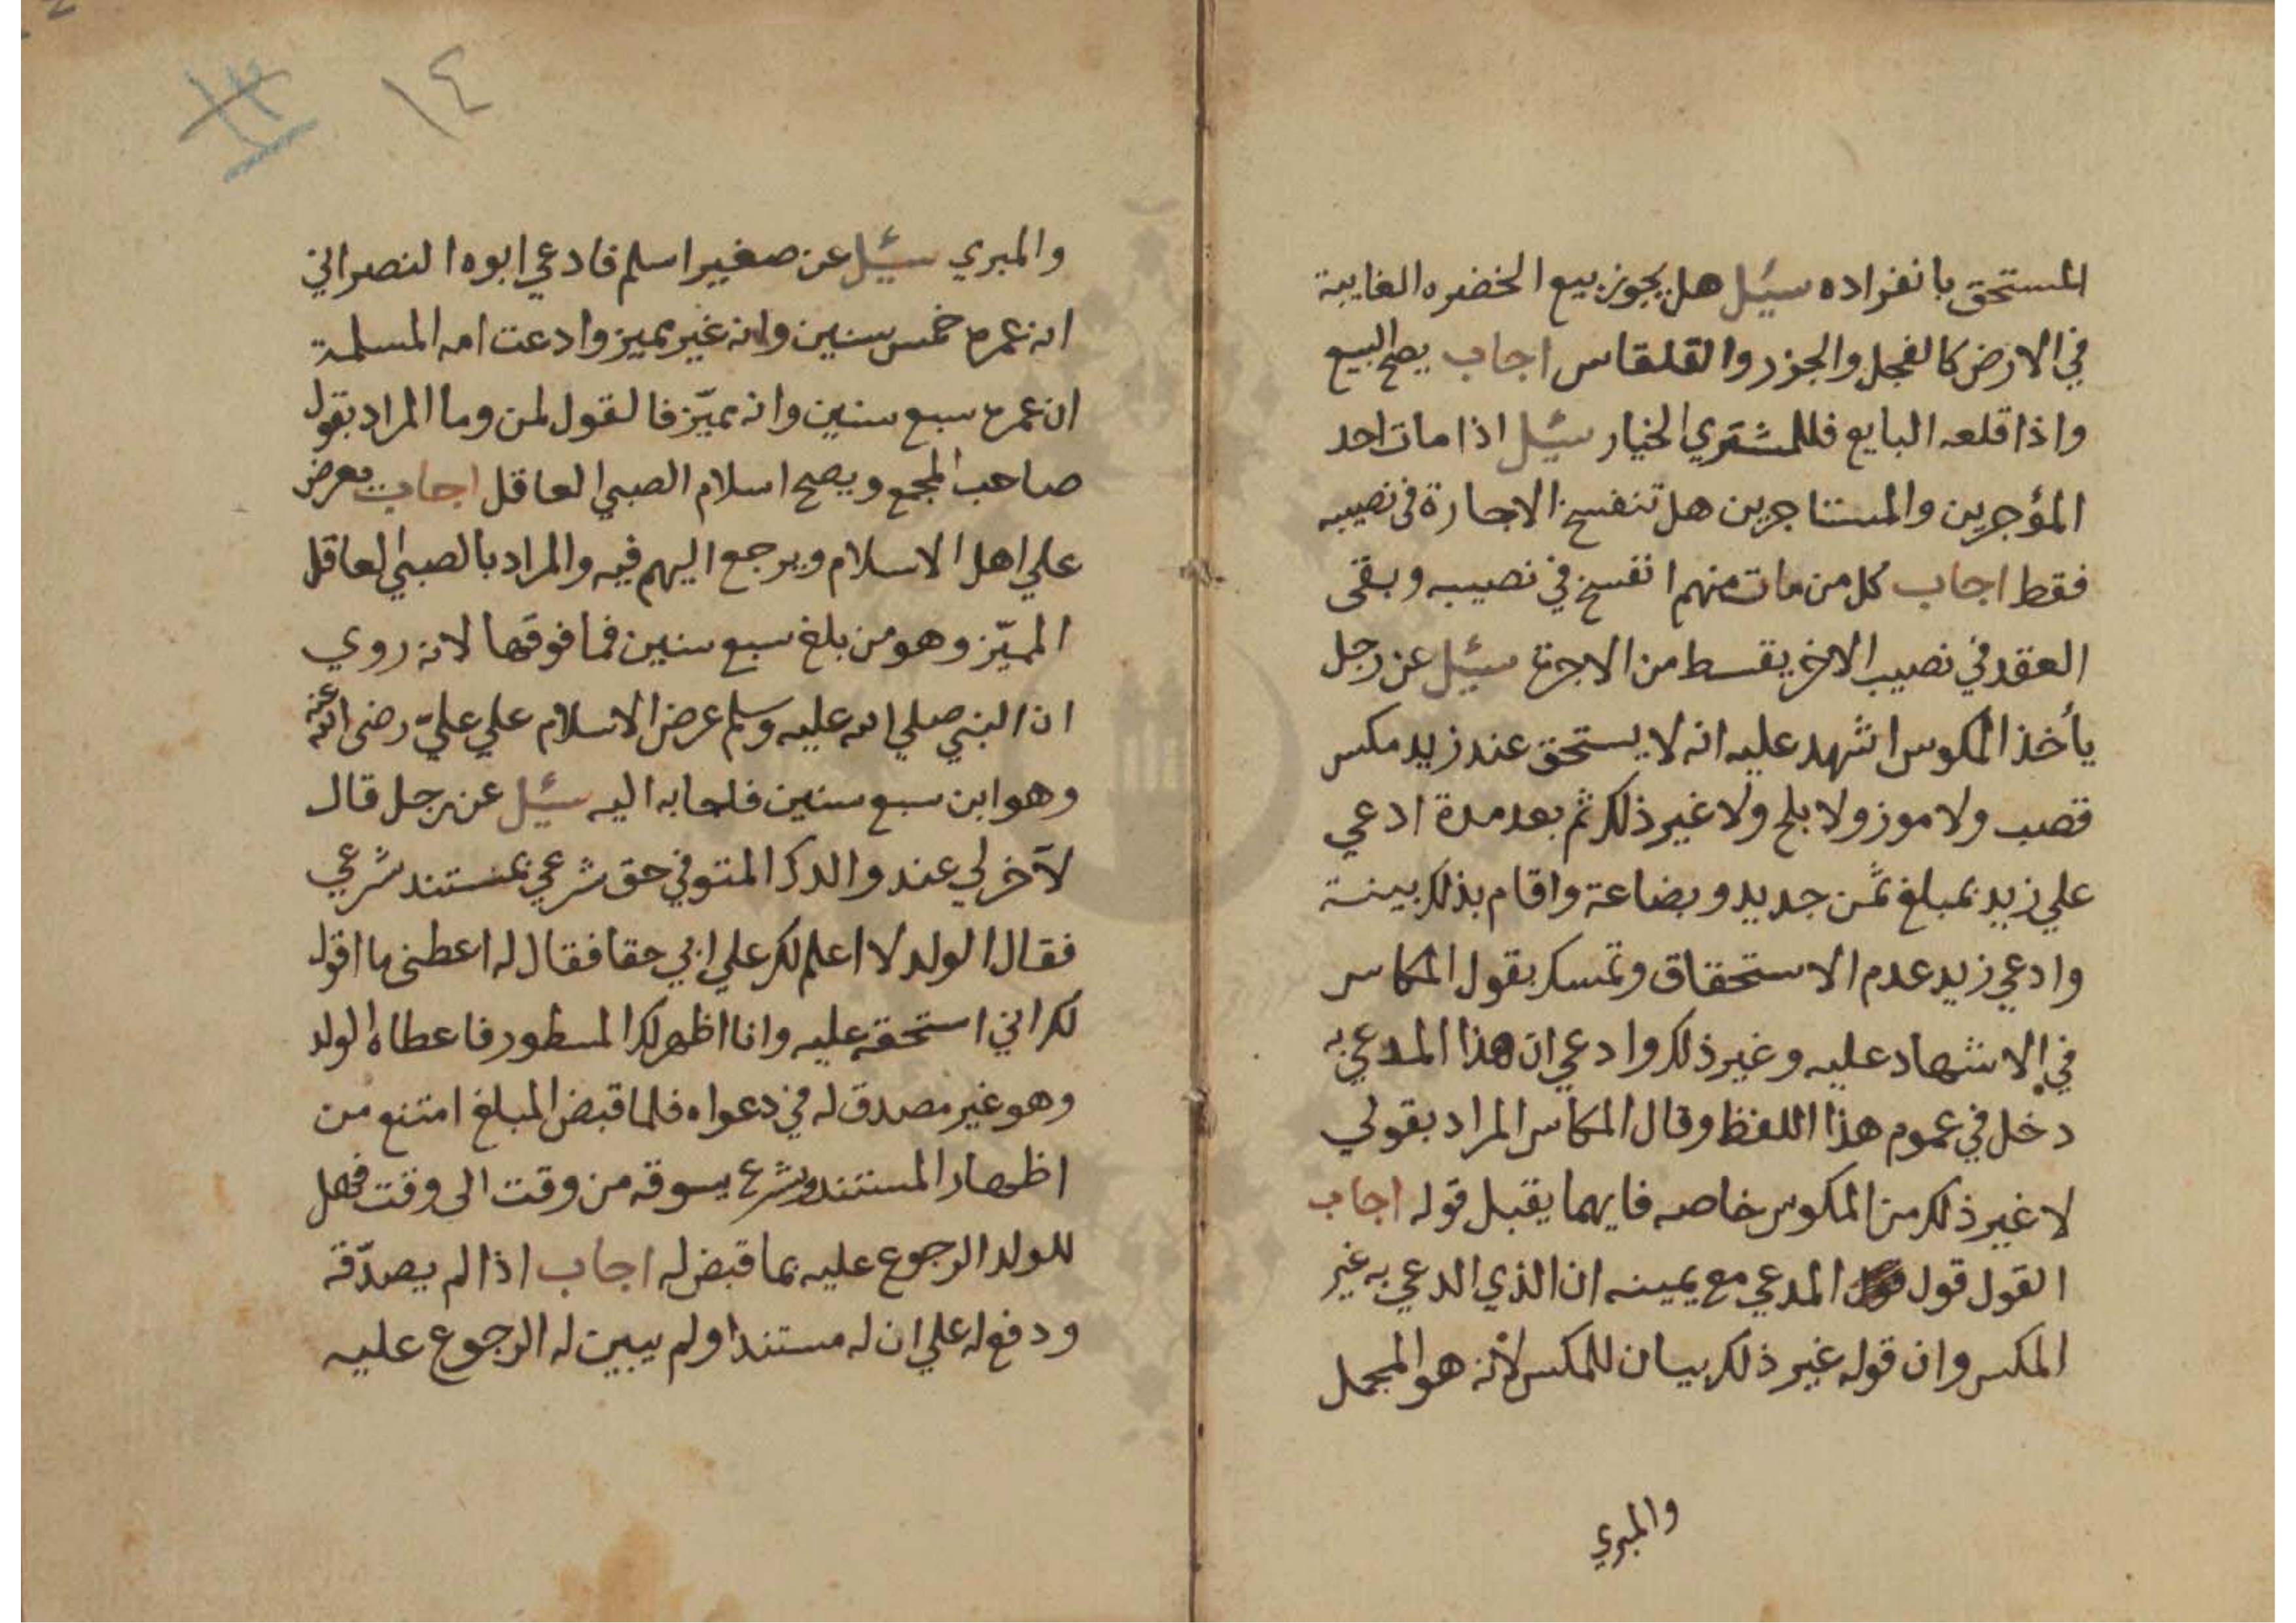 المستحق بانفراده سئيل هل يجوز بيع الخضره الغايبة
في الارض كالفجل والجزر والقلقاس اجاب يصح البيع
واذا قلعه البايع فللمشتري الخيار سئيل اذا مات احد
المؤجرين والمستاجرين هل تنفسخ الاجارة في نصيبه
فقط اجاب كل من مات منهم انفسخ في نصيبه وبقى
العقد في نصيب الاخر يقسط من الاجرة سئيل عن رجل
يأخذ المكوس اشهد عليه انه لا يستحق عند زيد مكس
قصب ولا موز ولا بلح ولا غير ذلك ثم بعد مدة ادعي
علي زيد بمبلغ ثمن جديد وبضاعة واقام بذلك بينة
وادعي زيد عدم الاستحقاق وتمسك بقول المكاس
في الاشهاد عليه وغير ذلك وادعي ان هذا المدعي به
دخل في عموم هذا اللفظ وقال المكاس المراد بقولي
لا غير ذلك من المكوس خاصه فايهما يقبل قوله اجاب
القول قول المدعي مع يمينه ان الذي الدعي به غير
المكس وان قوله غير ذلك بيان للمكس لأنه هو المجمل
والمبري
١٤
١٣
والمبري سئيل عن صغير اسلم فادعي ابوه النصراني
انه عمره خمس سنين وانه غير مميز وادعت امه المسلمة
ان عمره سبع سنين وانه مميّز فالقول لمن وما المراد بقول
صاحب المجمع ويصح اسلام الصبي العاقل اجاب يعرض
علي اهل الاسلام ويرجع اليهم فيه والمراد بالصبي العاقل
المميّز وهو من بلغ سبع سنين فما فوقها لانه روي
ان النبي صلي الله عليه وسلم عرض الاسلام علي عليّ رضى الله عنه
وهو ابن سبع سنين فاجابه اليه سئيل عن رجل قال
لآخر لي عند والدك المتوفي حق شرعي بمستند شرعي
فقال الولد لا اعلم لك علي ابي حقا فقال له اعطني ما اقول
لك اني استحقه عليه وانا اظهر لك المسطور فاعطاه الولد
وهو غير مصدق له في دعواه فلما قبض المبلغ امتنع من
اظهار المستند وشرع يسوقه من وقت الى وقت فهل
للولد الرجوع عليه بما قبض له اجاب اذا لم يصدّقه
ودفع له علي ان له مستندا ولم يبين له الرجوع عليه